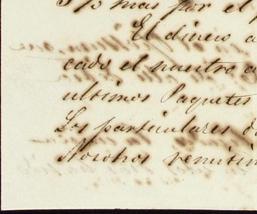 mas por el
El dinero
cado el nuestro a
ultimos Paquetes
Los particulares d
Nosotros remitim